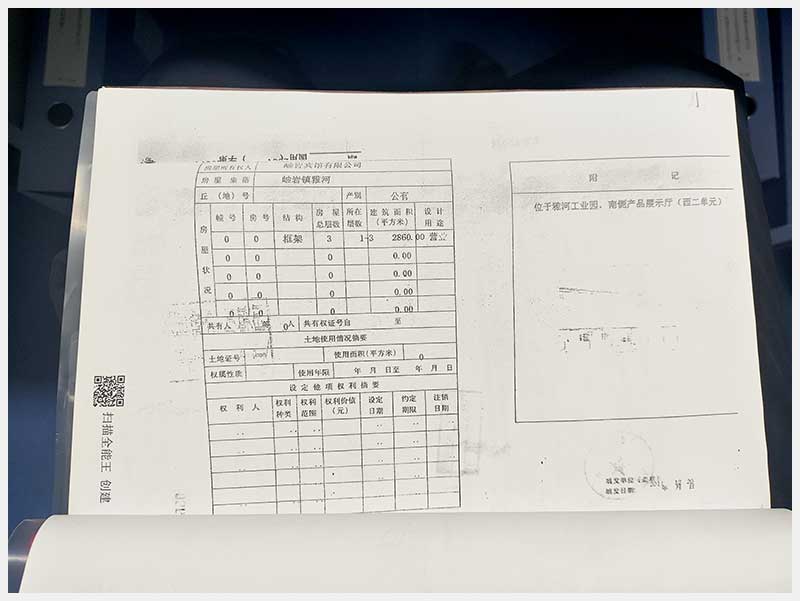 房屋所有权人 岫岩宾馆有限公司
房屋坐落 岫岩镇雅河
丘（地）号 产别 公有
房屋状况
幢号 房号 结构 房屋总层数 所在层数 建筑面积（平方米） 设计用途
0 0 框架 3 1-3 2860.00 营业
0 0 0 0.00
0 0 0 0.00
0 0 0 0.00
0 0 0 0.00
共有人 0人 共有权证号自 至
土地使用情况摘要
土地证号 使用面积（平方米） 0
权属性质 使用年限 年 月 日至 年 月 日
设定他项权利摘要
权利人 权利种类 权利范围 权利价值（元） 设定日期 约定期限 注销日期
附 记
位于雅河工业园，南侧产品展示厅（西二单元）
填发单位
填发日期:
扫描全能王 创建